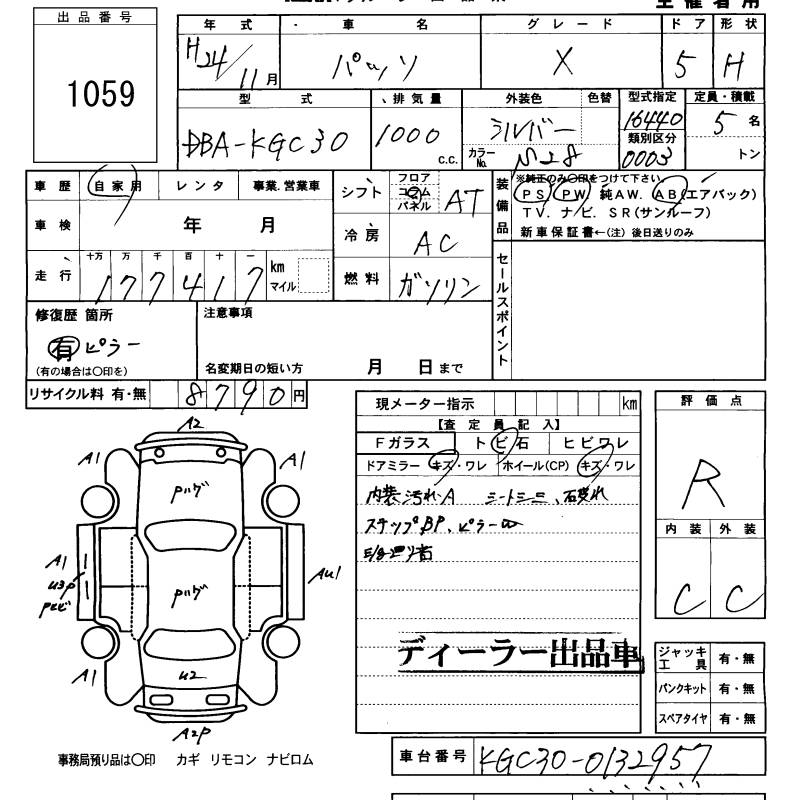 出品番号
1059
年式 車名 グレード ドア 形状
H24/11月 パッソ X 5 H
型式 排気量 外装色 色替 型式指定 定員・積載
DBA-KGC30 1000 c.c. シルバー カラーNo. 16440 5名
類別区分
0003 トン
車歴 自家用 レンタ 事業.営業車
車検 年 月
走行 十万 万 千 百 十 一
177417 km マイル
シフト フロア コラム パネル AT
冷房 AC
燃料 ガソリン
装備品
※純正のみ○印をつけて下さい。
PS PW 純AW. AB(エアバック)
TV. ナビ. SR(サンルーフ)
新車保証書←(注) 後日送りのみ
セールスポイント
修復歴 箇所
有 ピラー
(有の場合は○印を)
注意事項
名変期日の短い方 月 日まで
リサイクル料 有・無 8790円
現メーター指示 km
【査定員記入】
Fガラス トビ石 ヒビワレ
ドアミラー キズ・ワレ ホイール(CP) キズ・ワレ
内装汚れ.A
ステップBP、ピラーW
ディーラー出品車
評価点
R
内装 外装
C C
ジャッキ工具 有・無
パンクキット 有・無
スペアタイヤ 有・無
A2
A1 A1
Pハゲ
A1
U3P
AU1
Pハゲ
A1 A1
U2
A2P
事務局預り品は○印 カギ リモコン ナビロム
車台番号 KGC30-0132957